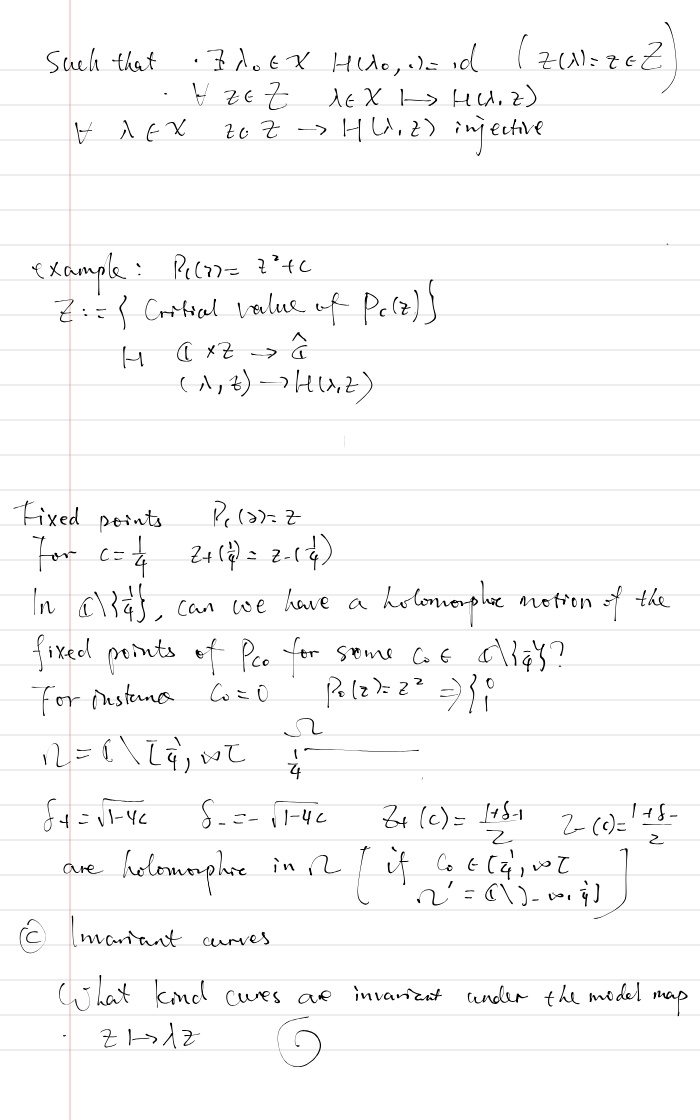 Such that · ∃ λ₀ ∈ X H(λ₀, ·) = id (z(λ) = z ∈ Z)
· ∀ z ∈ Z λ ∈ X ↦ H(λ, z)
∀ λ ∈ X z ∈ Z → H(λ, z) injective
example: Pc(z) = z² + c
Z := { Critical value of Pc(z) }
H ℂ × Z → ℂ̂
(λ, z) → H(λ, z)
Fixed points Pc(z) = z
For c = 1/4 z+(1/4) = z-(1/4)
In ℂ\{1/4}, can we have a holomorphic motion of the
fixed points of Pc₀ for some c₀ ∈ ℂ\{1/4}?
For instance c₀ = 0 P₀(z) = z² ⇒ { 0 1
Ω = ℂ \ [1/4, ∞[ Ω 1/4
δ+ = √1-4c δ- = -√1-4c z+(c) = 1+δ+/2 z-(c) = 1+δ-/2
are holomorphic in Ω [ if c₀ ∈ [1/4, ∞[
Ω' = ℂ\]-∞, 1/4] ]
ⓒ Invariant curves
What kind cures are invariant under the model map
· z ↦ λz